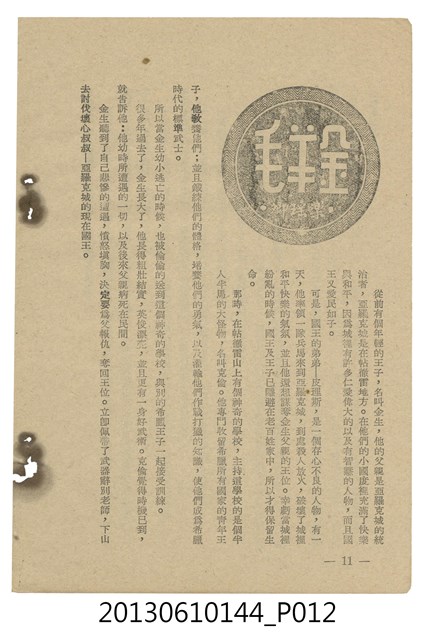 金羊毛
從前有個年輕的王子，名叫金生，他的父親是亞羅克城的統
治者，亞羅克城是在帖撒雷地方。在他們的小國處裡充滿了快樂
與和平，因爲城裡有許多仁愛偉大的以及有智慧的人物，而且國
王又愛民如子。
可是，國王的弟弟—皮理斯，是一個存心不良的人物，有一
天，他率領一隊兵馬來到亞羅克城，到處殺人放火，破壞了城裡
和平快樂的氣氛，並且他還想謀奪金生父親的王位。幸虧當城裡
紛亂的時候，國王及王子已隱避在老百姓家中，所以才得保留生
命。
那時，在帖撒雷山上有個神奇的學校，主持這學校的是個半
人半馬的大怪物，名叫克倫。他專門收留希臘所有國家的青年王
子，他教養他們；並且鍛鍊他們的體格，培養他們的勇氣，以及灌輸他們作戰打獵的知識，使他們成爲希臘
時代的標準武士。
所以當金生幼小逃亡的時候，他被偷偷的送到這個神奇的學校，與別的希臘王子一起接受訓練。
很多年過去了，金生長大了，他長得粗壯結實，英俊漂亮，並且更有一身好武術。克倫覺得時機已到，
就告訴他：他幼時所遭遇的一切，以及後來父親病死在民間。
金生聽到了自己悲慘的遭遇，憤怒填胸，決定要爲父報仇，奪回王位。立即佩帶了武器辭別老師，下山
去討伐壞心叔叔—亞羅克城的現在國王。
— 11 —
20130610144_P012